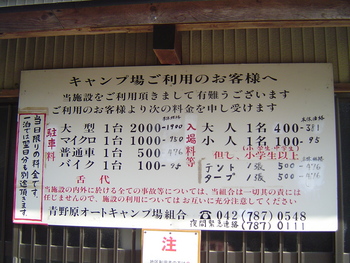 キャンプ場ご利用のお客様へ
当施設をご利用頂きまして有難うございます
ご利用のお客様より次の料金を申し受けます
駐車料
大型 1台 2000-1900
マイクロ 1台 1000-950
普通車 1台 500-476
バイク 1台 100-95
入場料等
大人 1名 400-381
(小学生・中学生)
小人 1名 100-95
但し、小学生以上
テント 1張 500-476
タープ 1張 500-476
舌代
当施設の内外に於ける全ての事故等については、当組合は一切其の責には
任じませんので、施設の利用については お互いに充分注意してください
青野原オートキャンプ場組合 ☎042(787)0548
夜間緊急連絡 〃(787)0111
当日限りの料金です。
泊では翌日分も別途頂きます
注